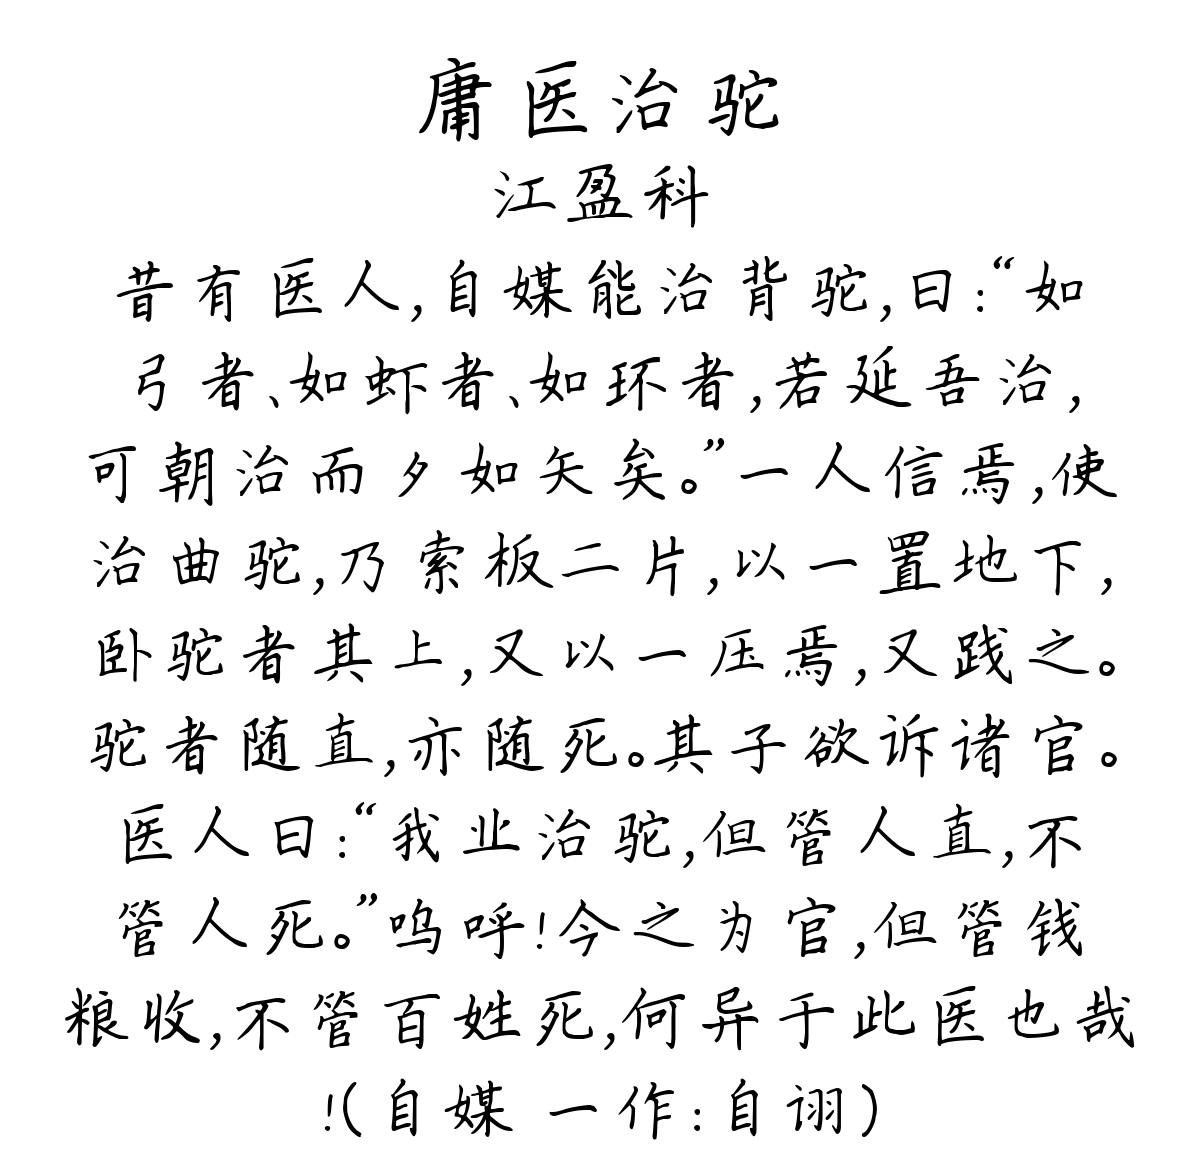 庸医治驼
江盈科
昔有医人,自媒能治背驼,曰:“如
弓者、如虾者、如环者,若延吾治,
可朝治而夕如矢矣。”一人信焉,使
治曲驼,乃索板二片,以一置地下,
卧驼者其上,又以一压焉,又践之。
驼者随直,亦随死。其子欲诉诸官。
医人曰:“我业治驼,但管人直,不
管人死。”呜呼!今之为官,但管钱
粮收,不管百姓死,何异于此医也哉
!(自媒 一作:自诩)